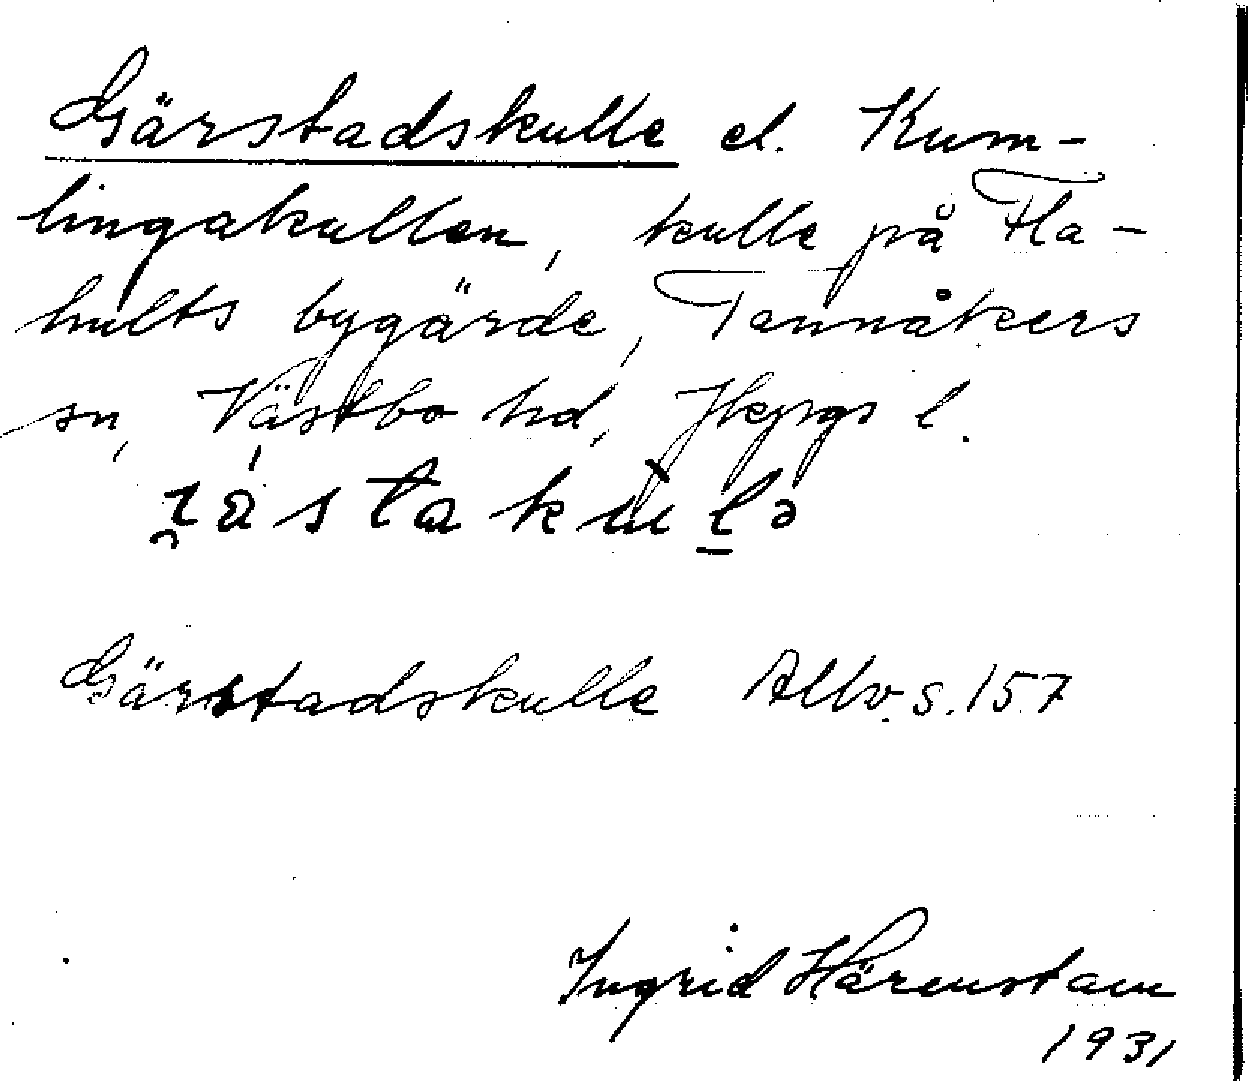 Gärstadskulle el. Kum-
lingakullen, kulle på Fla-
hults bygärde, Tannåkers
sn, Västbo hd, Jkpgs l.
Gärstadskulle Allv. s. 157
Ingrid Härenstam
1931